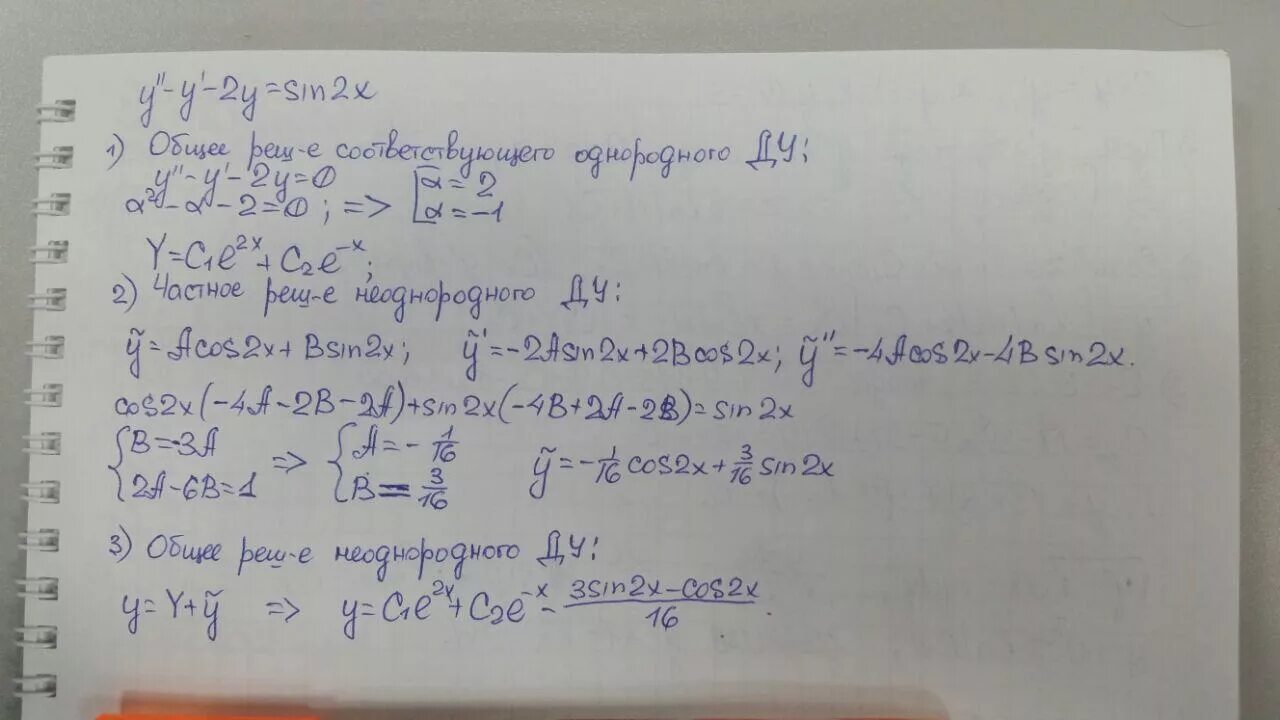 y''-y'-2y=sin2x
1) Общее реш-е соответствующего однородного ДУ:
y''-y'-2y=0
α²-α-2=0; => [α=2
α=-1
Y=C₁e^{2x}+C₂e^{-x};
2) Частное реш-е неоднородного ДУ:
ỹ=Acos2x+Bsin2x; ỹ'=-2Asin2x+2Bcos2x; ỹ''=-4Acos2x-4Bsin2x.
cos2x(-4A-2B-2A)+sin2x(-4B+2A-2B)=sin2x
{B=-3A => {A=-1/16 ỹ=-1/16cos2x+3/16sin2x
2A-6B=1 B=3/16
3) Общее реш-е неоднородного ДУ:
y=Y+ỹ => y=C₁e^{2x}+C₂e^{-x}-(3sin2x-cos2x)/16.